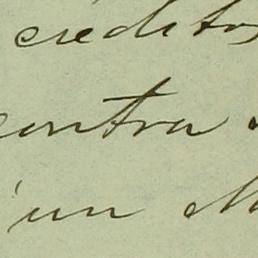 creditos
contra
un